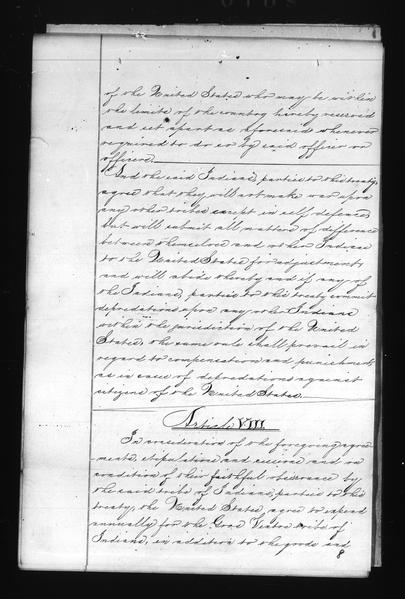 of the United States who may be within
the limits of the country hereby reserved
and set apart as aforesaid whenever
required to do so by said officer or
officers.
And the said Indians, parties to this treaty,
agree that they will not make war upon
any other tribes except in self defence,
but will submit all matters of difference
between themselves and other Indians
to the United States for adjustment,
and will abide thereby and if any of
the Indians, parties to this treaty commit
depredations upon any other Indians
within the jurisdiction of the United
States, the same rule shall prevail in
regard to compensation and punishment,
as in cases of depredations against
citizens of the United States.
Article VIII
In consideration of the foregoing agree-
ments, stipulations and cessions and on
condition of their faithful observance by
the said tribe of Indians, parties to this
treaty, the United States, agree to expend
annually for the Gros Ventre tribe of
Indians, in addition to the goods and
8